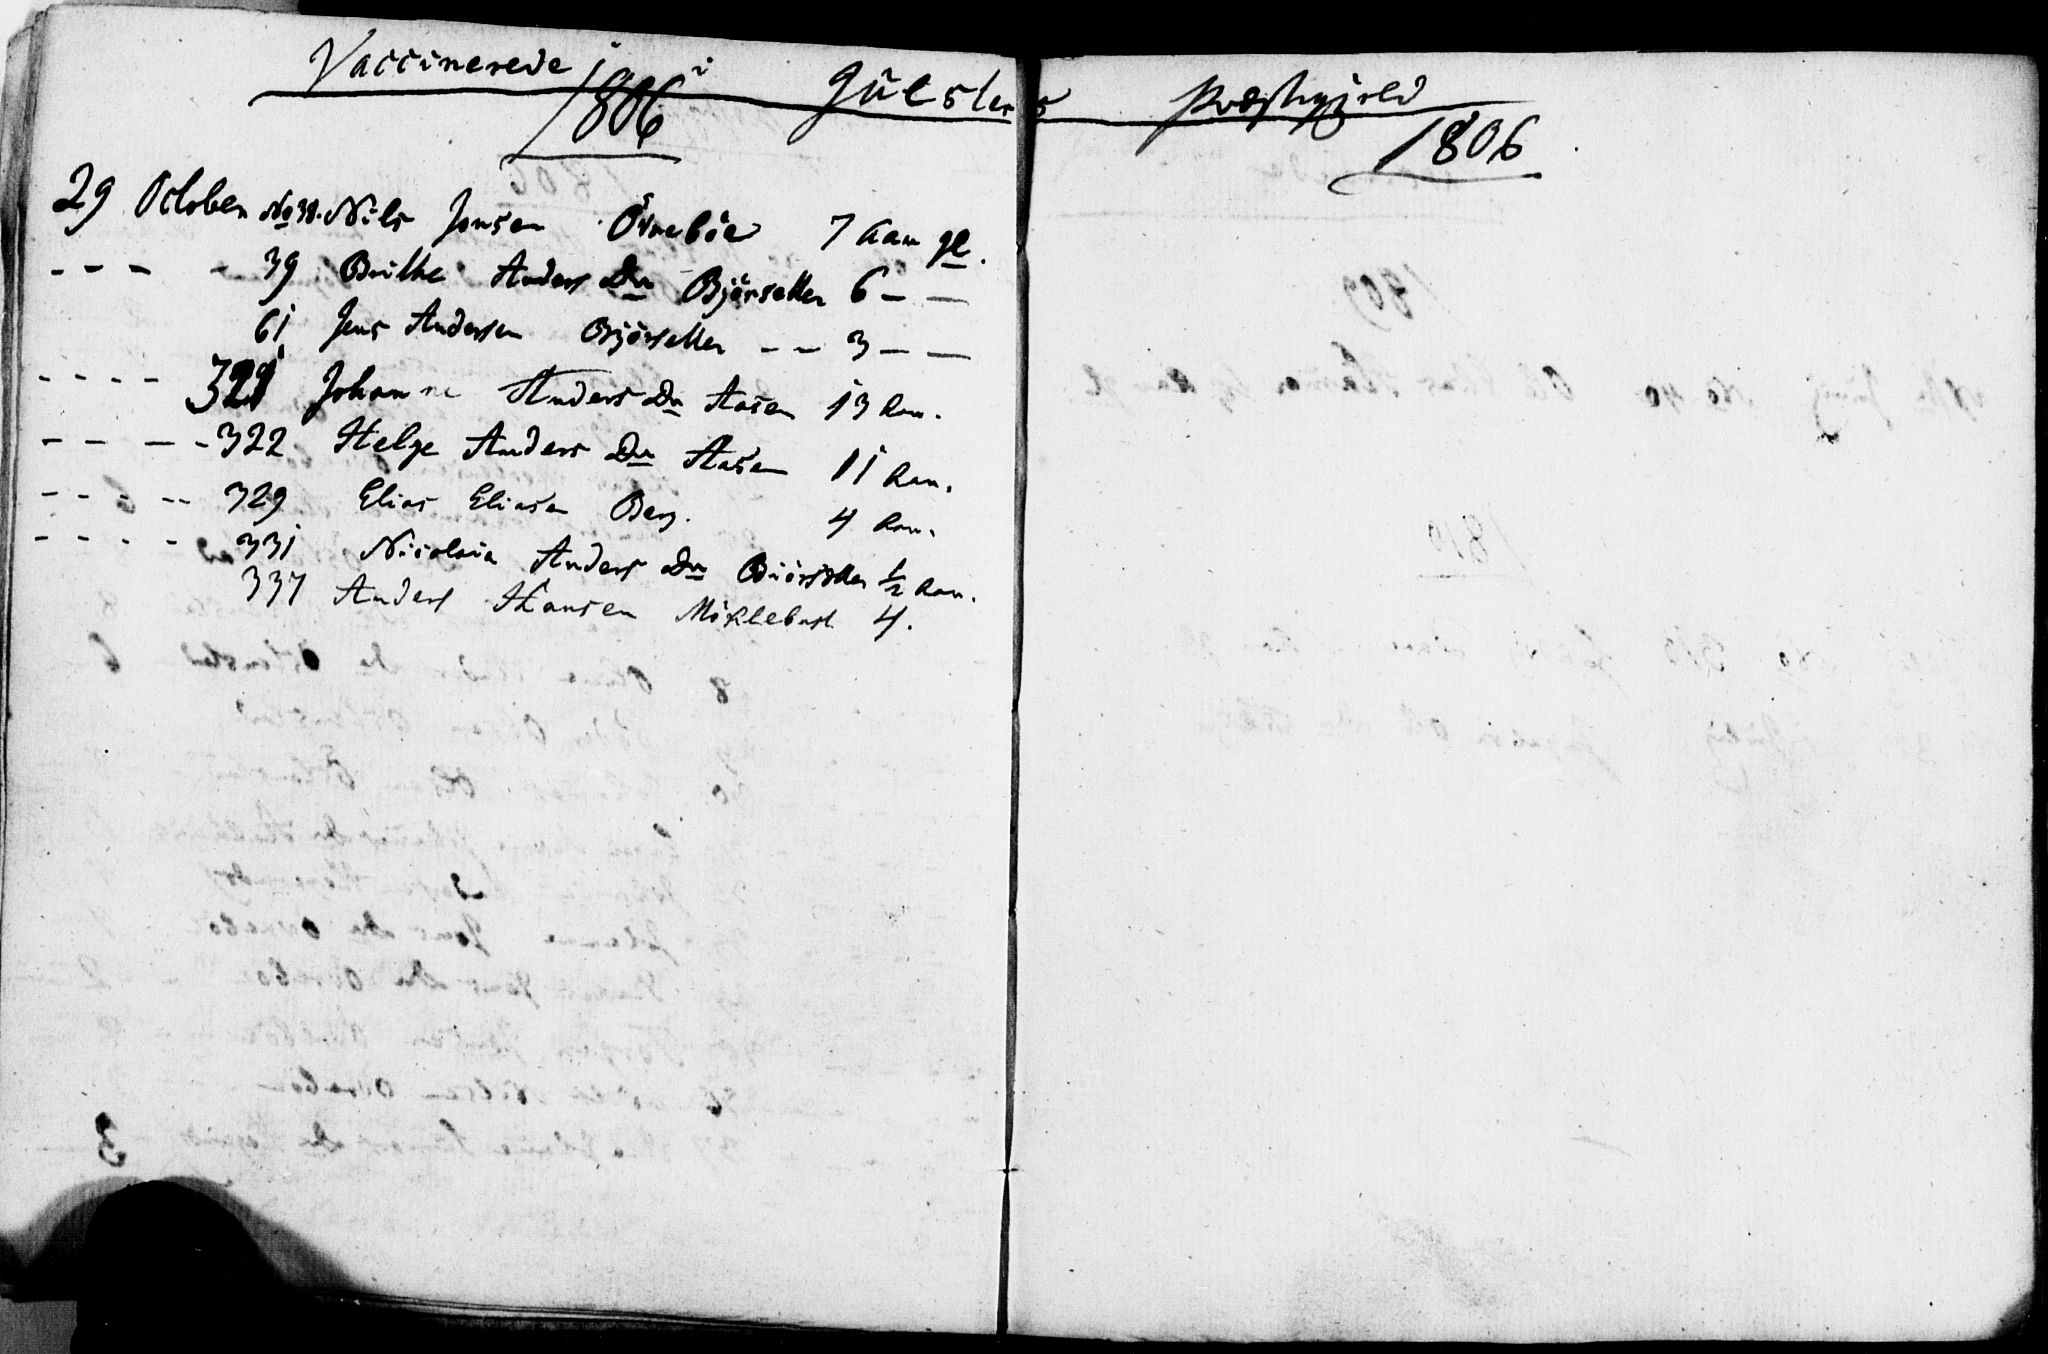 Vaccinerede i Gülslens Præstegjeld
1806
1806
29 October No 38. Nils Jonsen Övreböe 7 Aar gl.
- - - - 39 Brithe Anders Dn Bjórsetter 6 - -
61 Jens Andersen Bjórsetter - - 3 - -
- - - - 321 Johanne Anders Dn Aasen 13 Aar.
- - - - 322 Helge Anders Dn Aasen 11 Aar.
- - - - 329 Elias Eliasen Berg. 4 Aar.
- - - - 331 Nicolaia Anders Dn Biörsetter 1/2 Aar.
337 Anders Hansen Möklebust 4.